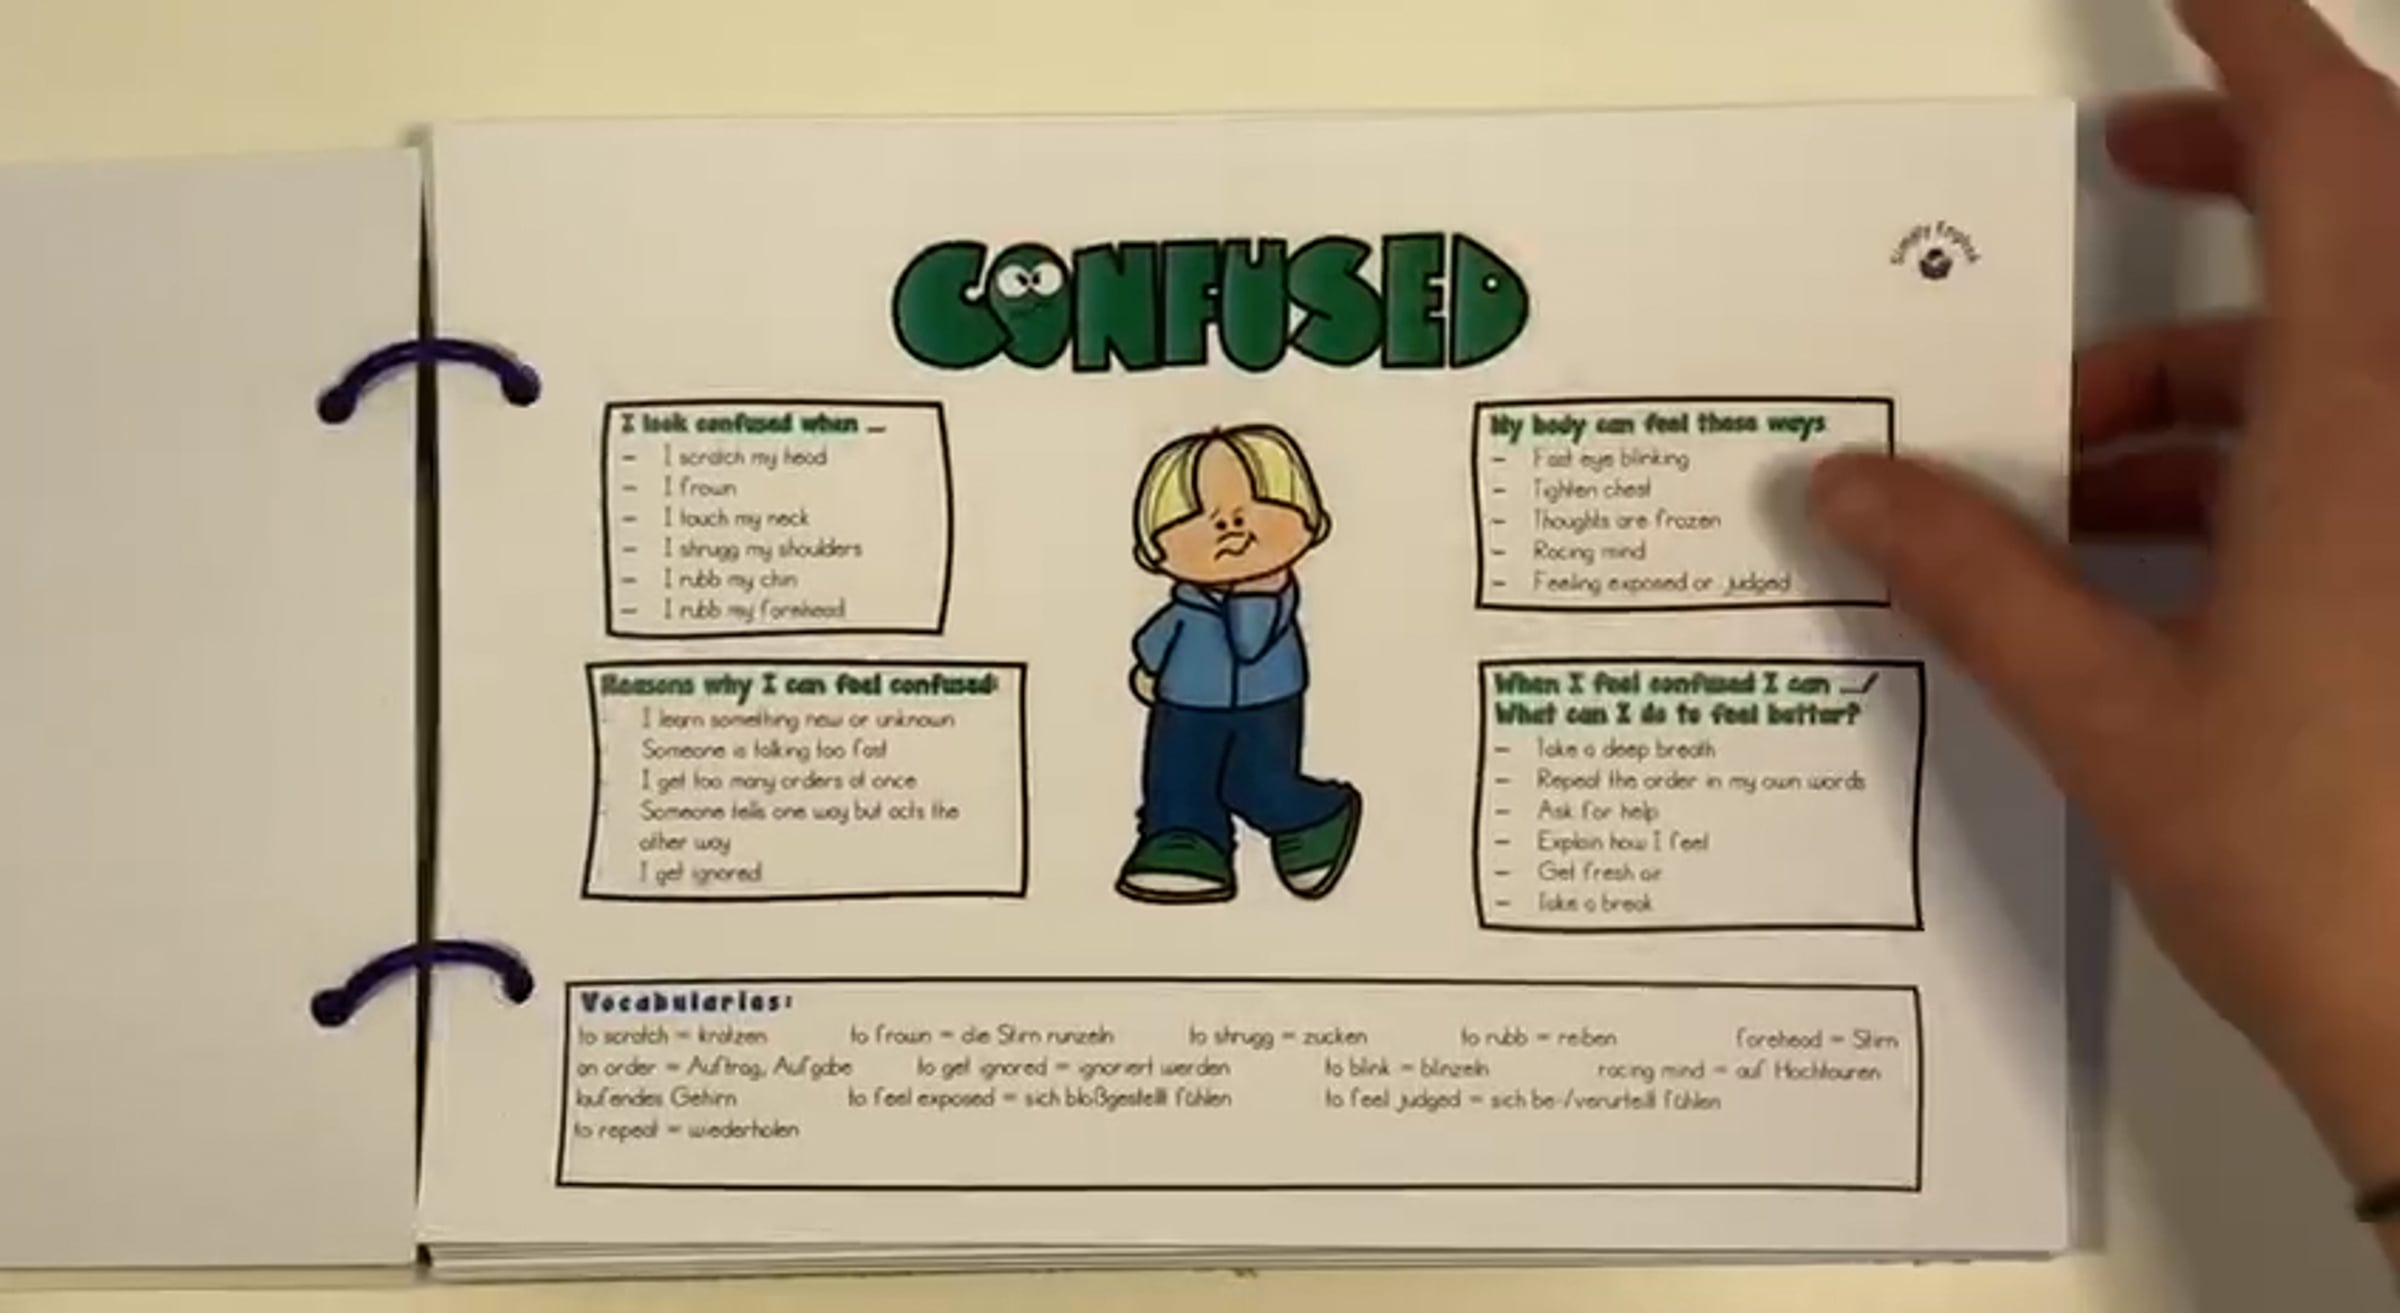 CONFUSED
Simply English
I look confused when ...
- I scratch my head
- I frown
- I touch my neck
- I shrugg my shoulders
- I rubb my chin
- I rubb my forehead
My body can feel these ways
- Fast eye blinking
- Tighten chest
- Thoughts are frozen
- Racing mind
- Feeling exposed or judged
Reasons why I can feel confused:
- I learn something new or unknown
- Someone is talking too fast
- I get too many orders at once
- Someone tells one way but acts the
other way
- I get ignored
When I feel confused I can .../
What can I do to feel better?
- Take a deep breath
- Repeat the order in my own words
- Ask for help
- Explain how I feel
- Get fresh air
- Take a break
Vocabularies:
to scratch = kratzen to frown = die Stirn runzeln to shrugg = zucken to rubb = reiben forehead = Stirn
an order = Auftrag, Aufgabe to get ignored = ignoriert werden to blink = blinzeln racing mind = auf Hochtouren
laufendes Gehirn to feel exposed = sich bloßgestellt fühlen to feel judged = sich be-/verurteilt fühlen
to repeat = wiederholen